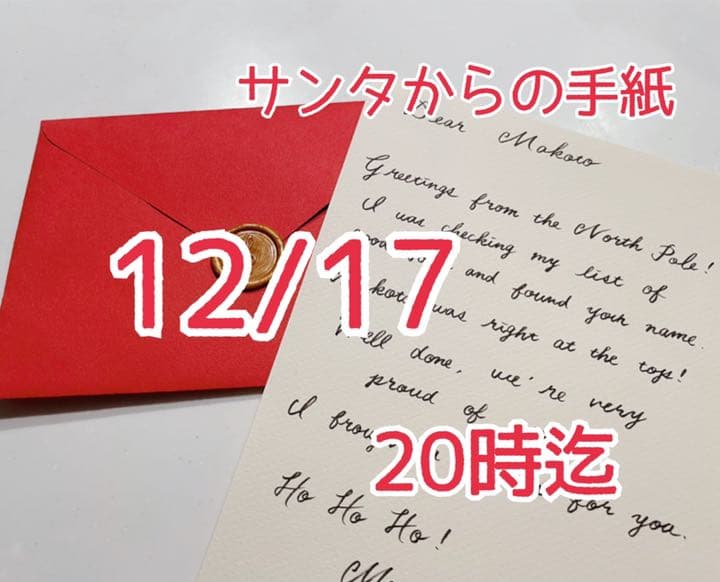 サンタからの手紙
12/17
20時迄
Dear Makoto
Greetings from the North Pole!
I was checking my list of
and found your name.
was right at the top!
Well done, we're very
proud of
I
for you.
Ho Ho Ho!